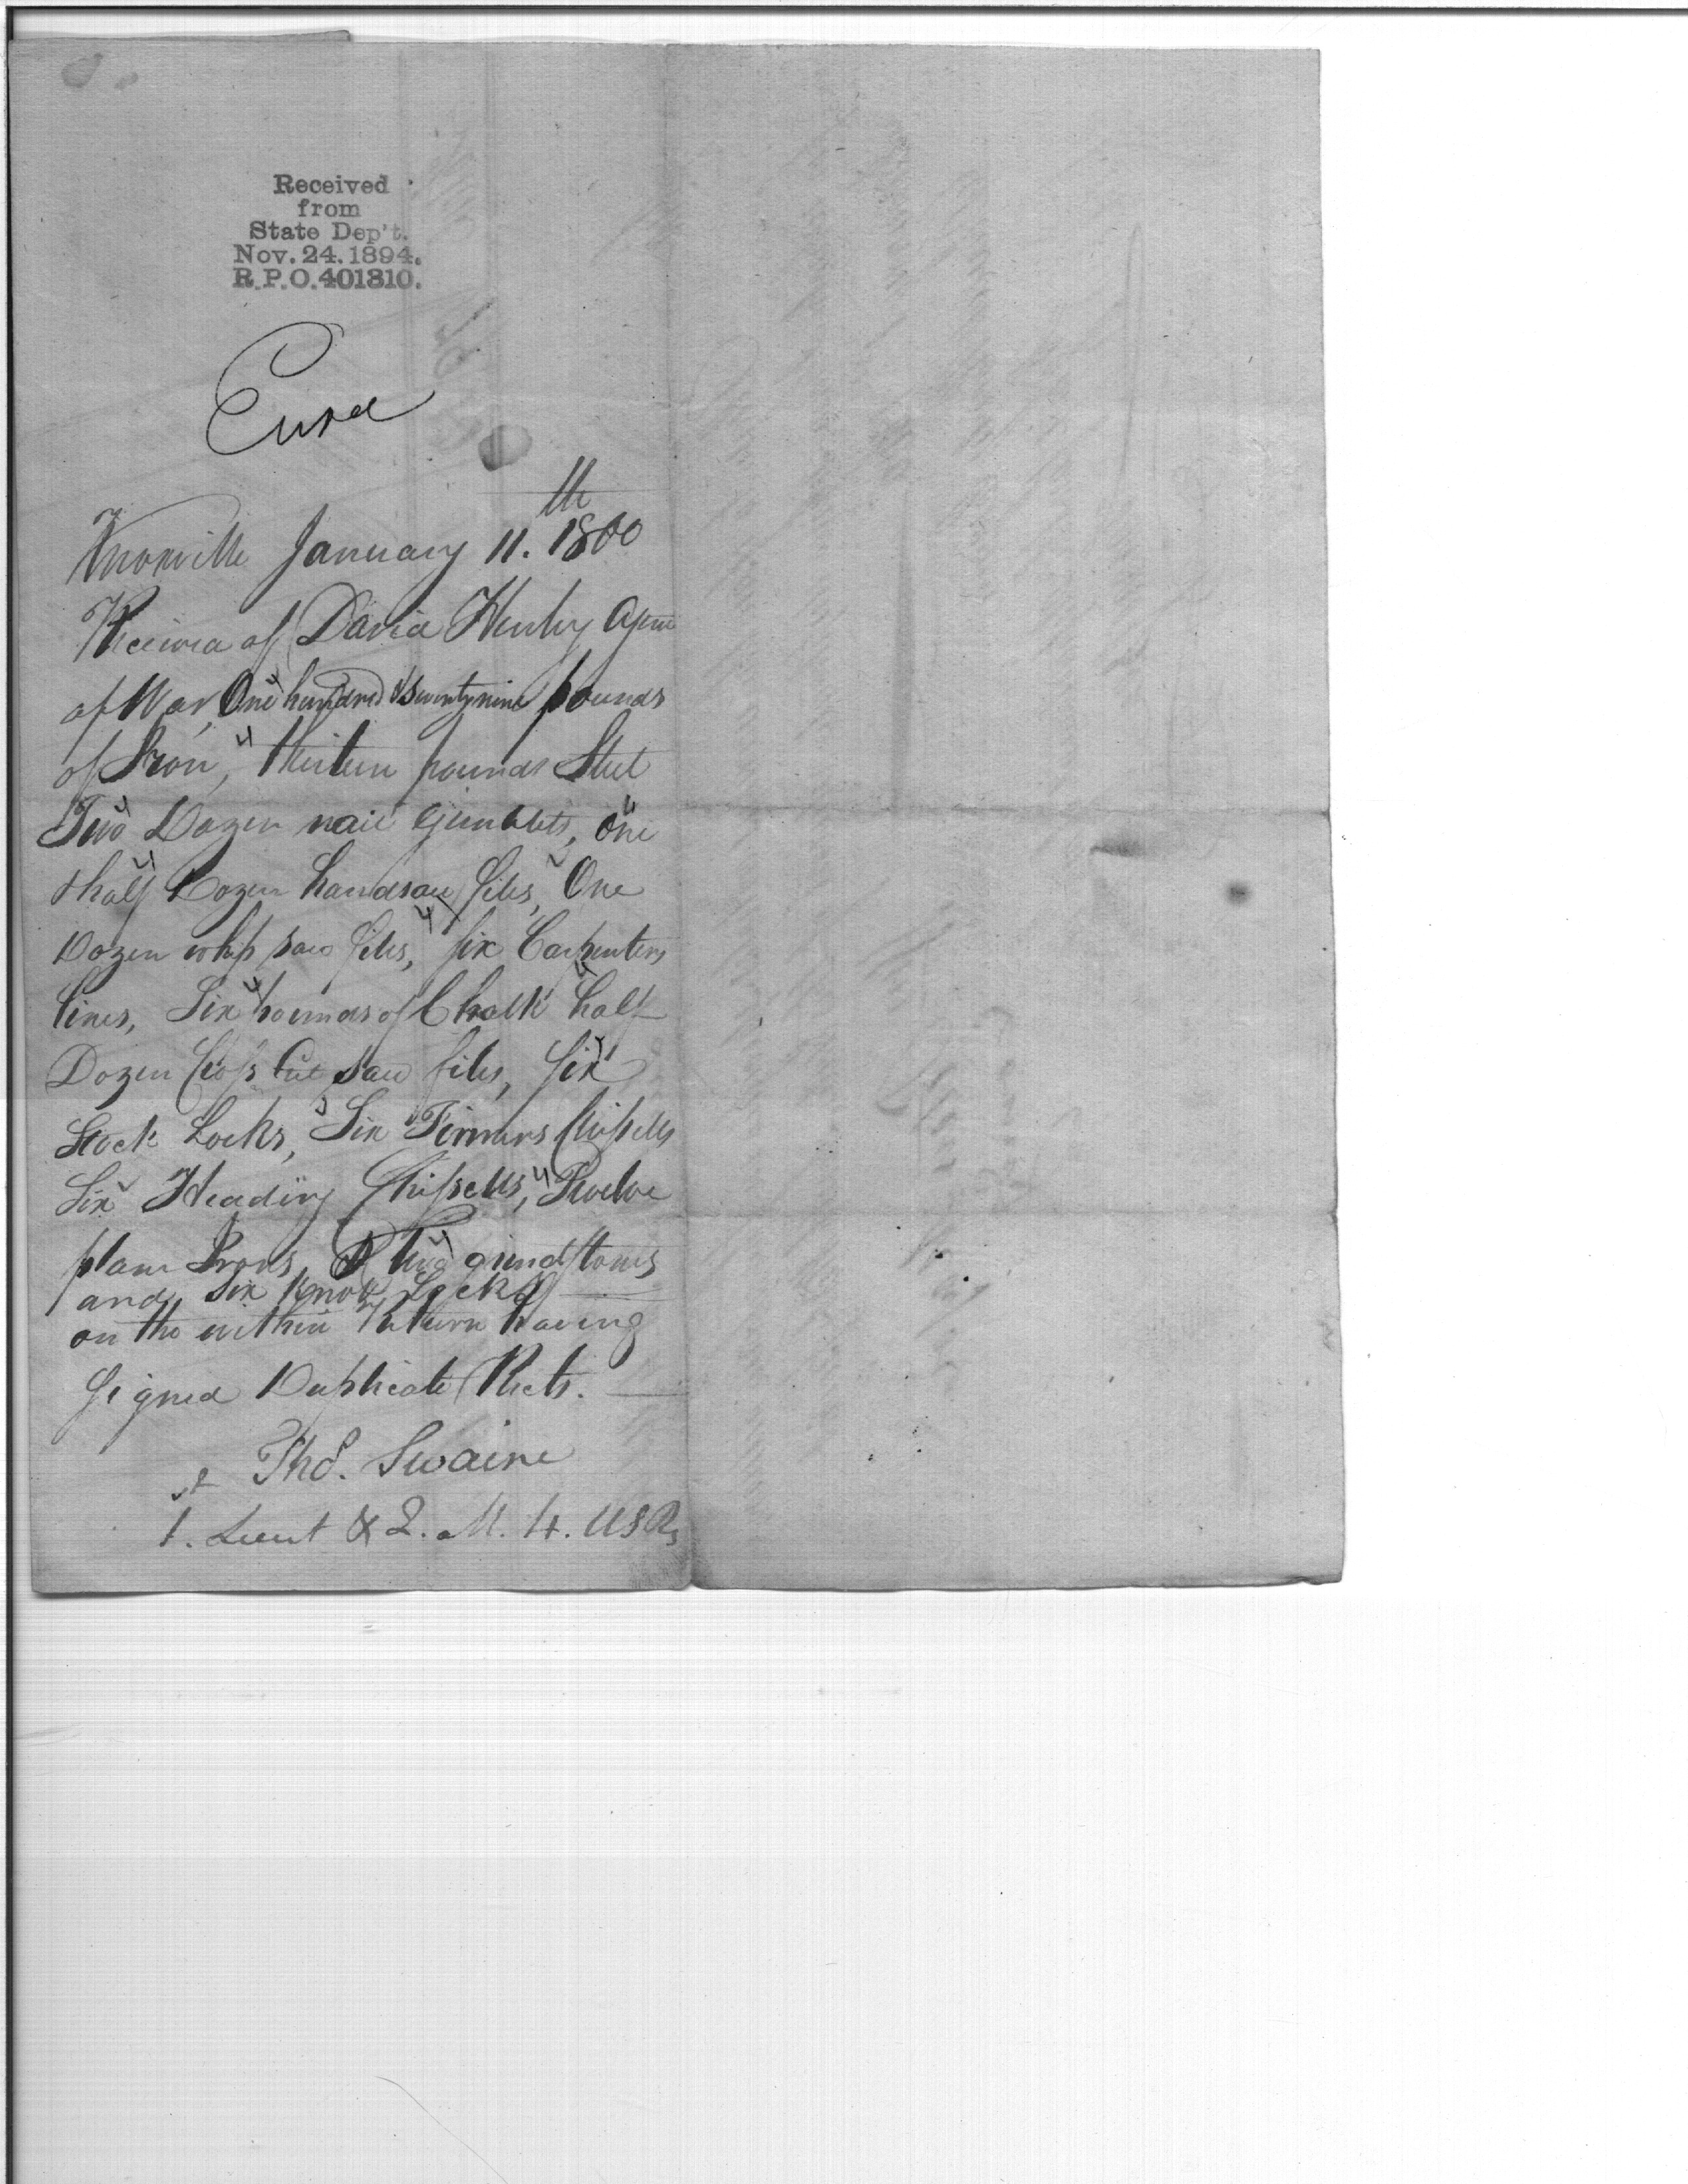 Received
from
State Dep't.
Nov. 24. 1894.
R.P.O. 401310.
Knoxville January 11.th 1800
Received of David Henley Agent
of War, One hundred & seventy nine pounds
of Iron, thirteen pounds Steel
Two Dozen nail Gimblets, One
& half Dozen handsaw files, One
Dozen whip saw files, six Carpenters
lines, Six pounds of Chalk half
Dozen Cross Cut saw files, six
Stock Locks, Six Firmers Chissells
Six Heading Chissells, Twelve
plane Irons, two grindstones
and Six Knob Locks
on the within Return having
signed Duplicate Rects.
Thos. Swaine
1.st Lieut & Q. M. 4. US R